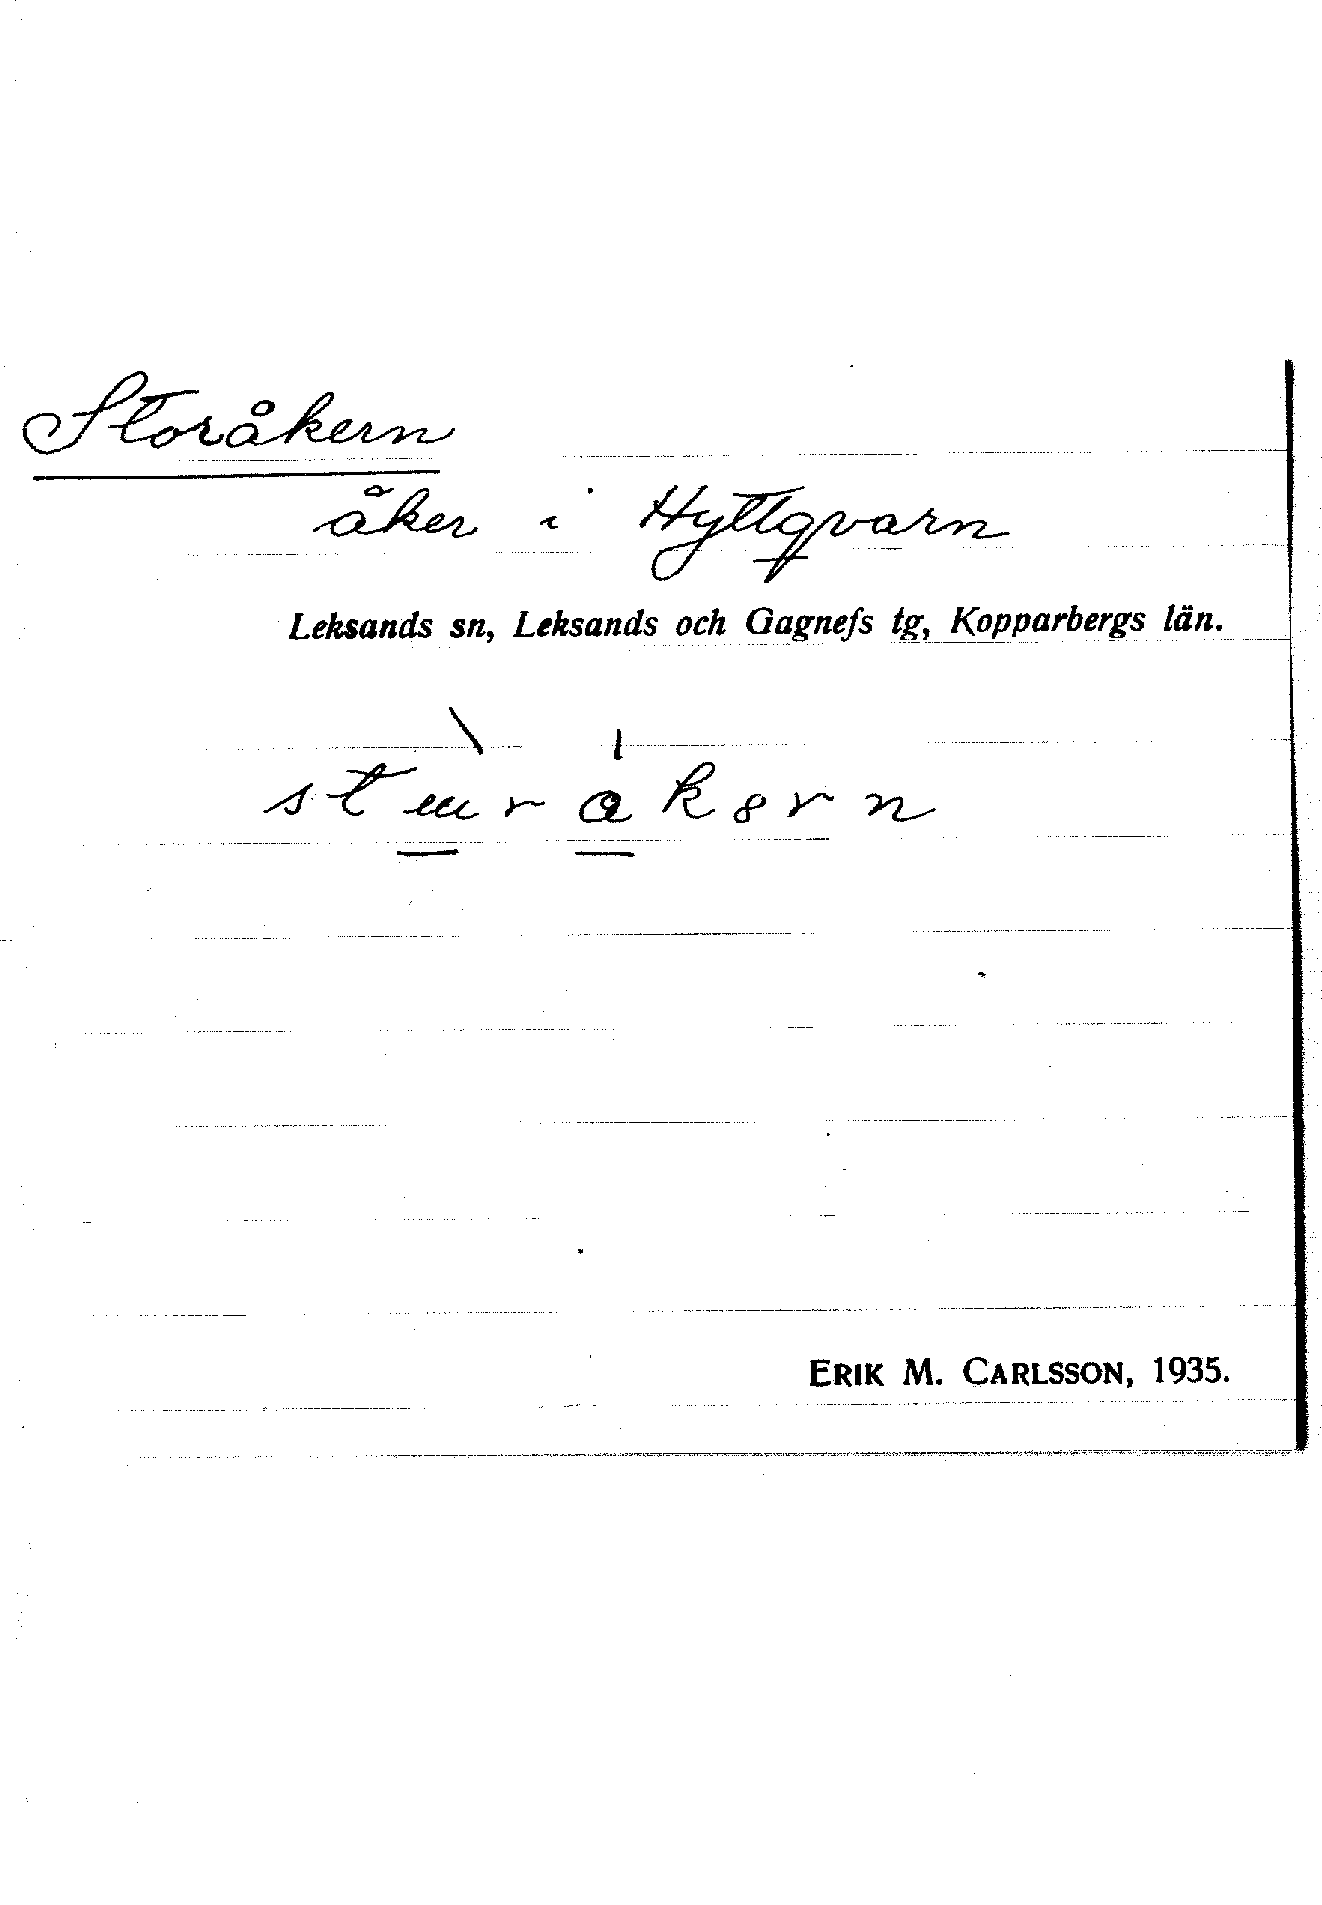 Storåkern
åker i Hyttqvarn
Leksands sn, Leksands och Gagnefs tg, Kopparbergs län.
ERIK M. CARLSSON, 1935.